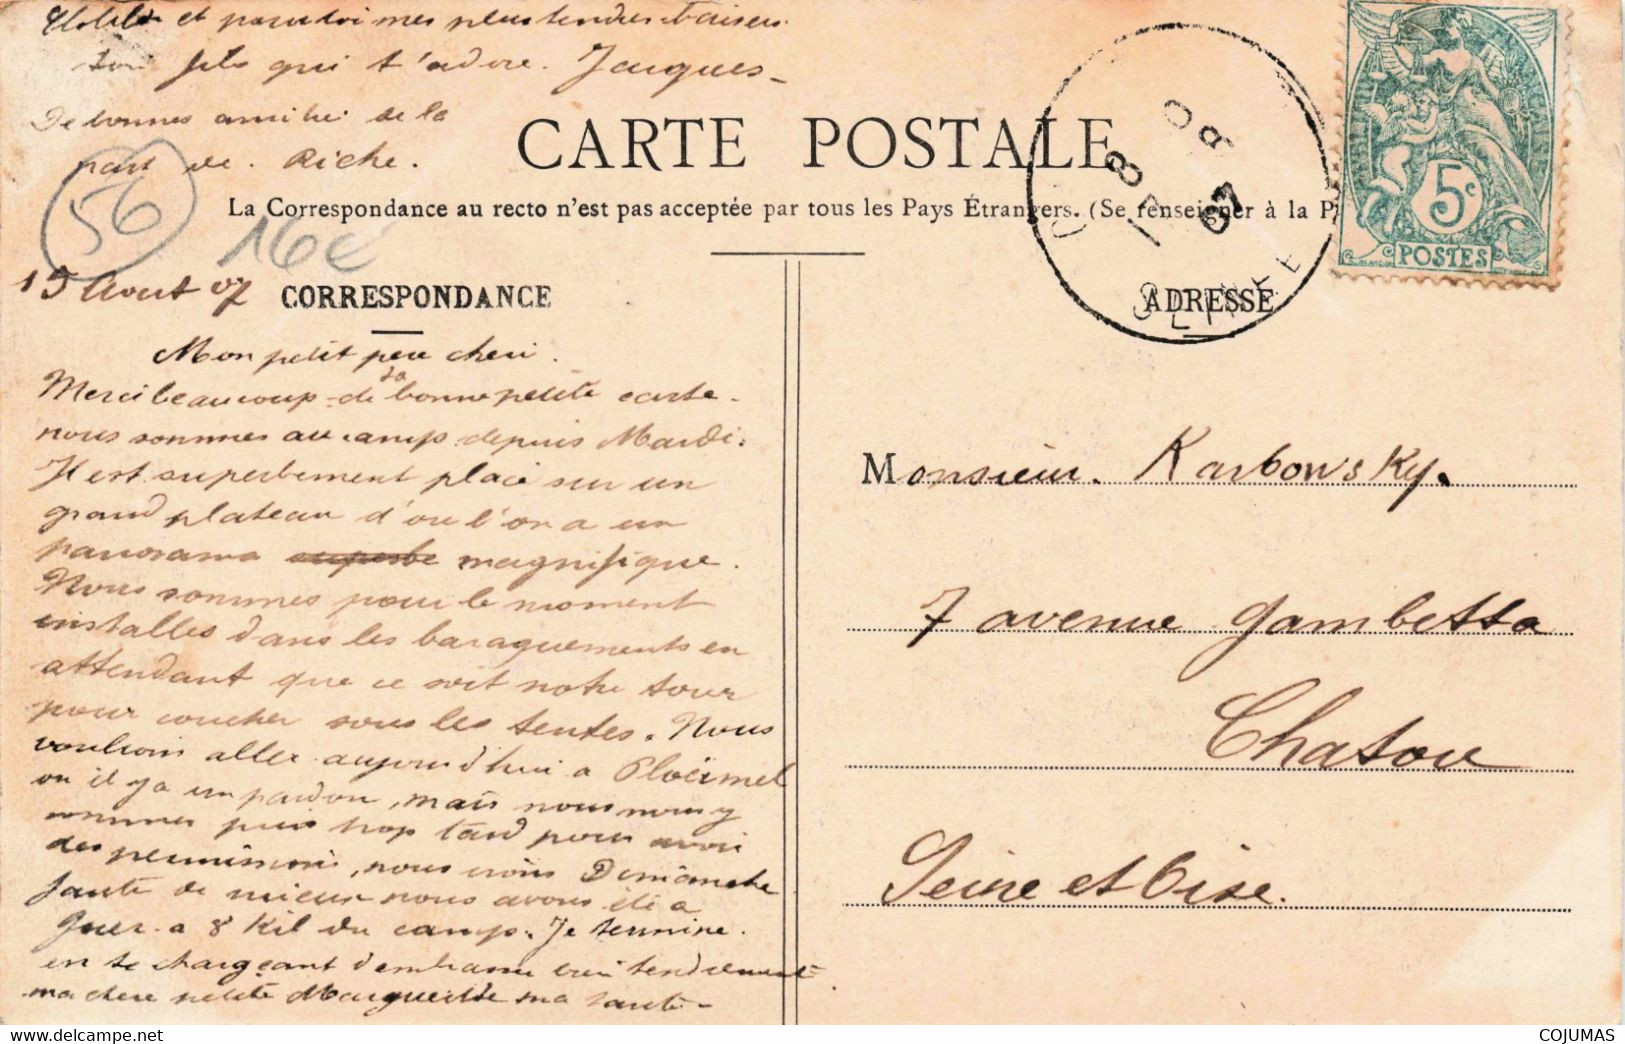 et pour toi mes plus tendres baisers
ton fils qui t'adore. Jacques -
De bonnes amitiés de la
part de. Riche.
56
16€
CARTE POSTALE
La Correspondance au recto n'est pas acceptée par tous les Pays Étrangers. (Se renseigner à la P
5c
POSTES
8
07
15 Aout 07
CORRESPONDANCE
ADRESSE
Mon petit pere cheri.
Merci beaucoup de ta bonne petite carte.
nous sommes au camp depuis Mardi.
Il est superbement placé sur un
grand plateau d'ou l'on a un
panorama superbe magnifique.
Nous sommes pour le moment
installes dans les baraquements en
attendant que ce soit notre tour
pour coucher sous les tentes. Nous
voulions aller aujourd'hui a Ploërmel
ou il y a un pardon, mais nous nous y
sommes pris trop tard pour avoir
des permissions, nous irons Dimanche
faute de mieux nous avons été a
Guer a 8 Kil du camp. Je termine.
en te chargeant d'embrasser bien tendrement
ma chere petite Marguerite ma tante -
Monsieur. Karbowsky.
7 avenue Gambetta
Chatou
Seine et Oise.
COJUMAS